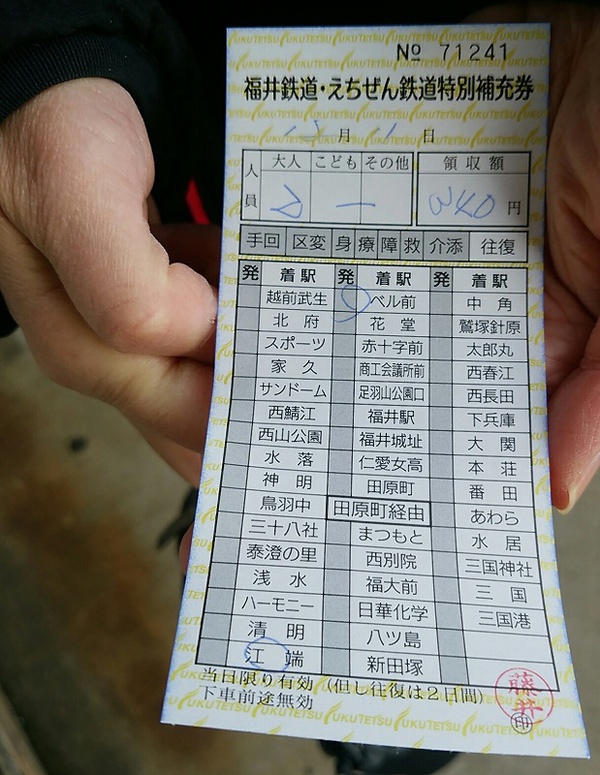 No 71241
福井鉄道・えちぜん鉄道特別補充券
月 1 日
人員 大人 こども その他 領収額
2 一 340 円
手回 区変 身 療 障 救 介添 往復
発 着駅 発 着駅 発 着駅
越前武生 ベル前 中角
北府 花堂 鷲塚針原
スポーツ 赤十字前 太郎丸
家久 商工会議所前 西春江
サンドーム 足羽山公園口 西長田
西鯖江 福井駅 下兵庫
西山公園 福井城址 大関
水落 仁愛女高 本荘
神明 田原町 番田
鳥羽中 田原町経由 あわら
三十八社 まつもと 水居
泰澄の里 西別院 三国神社
浅水 福大前 三国
ハーモニー 日華化学 三国港
清明 八ツ島
江端 新田塚
当日限り有効 (但し往復は2日間)
下車前途無効
藤井
印